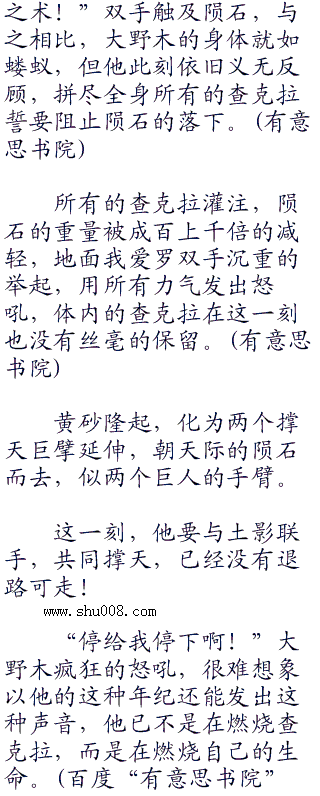 之术！”双手触及陨石，与
之相比，大野木的身体就如
蝼蚁，但他此刻依旧义无反
顾，拼尽全身所有的查克拉
誓要阻止陨石的落下。(有意
思书院)
所有的查克拉灌注，陨
石的重量被成百上千倍的减
轻，地面我爱罗双手沉重的
举起，用所有力气发出怒
吼，体内的查克拉在这一刻
也没有丝毫的保留。(有意思
书院)
黄砂隆起，化为两个撑
天巨擘延伸，朝天际的陨石
而去，似两个巨人的手臂。
这一刻，他要与土影联
手，共同撑天，已经没有退
路可走！
www.shu008.com
“停给我停下啊！”大
野木疯狂的怒吼，很难想象
以他的这种年纪还能发出这
种声音，他已不是在燃烧查
克拉，而是在燃烧自己的生
命。(百度“有意思书院”